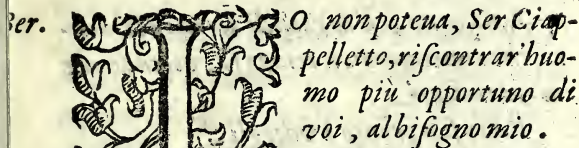 Ber. IO non poteua, Ser Ciap-
pelletto, riſcontrar'huo-
mo più opportuno di
voi, al biſogno mio.